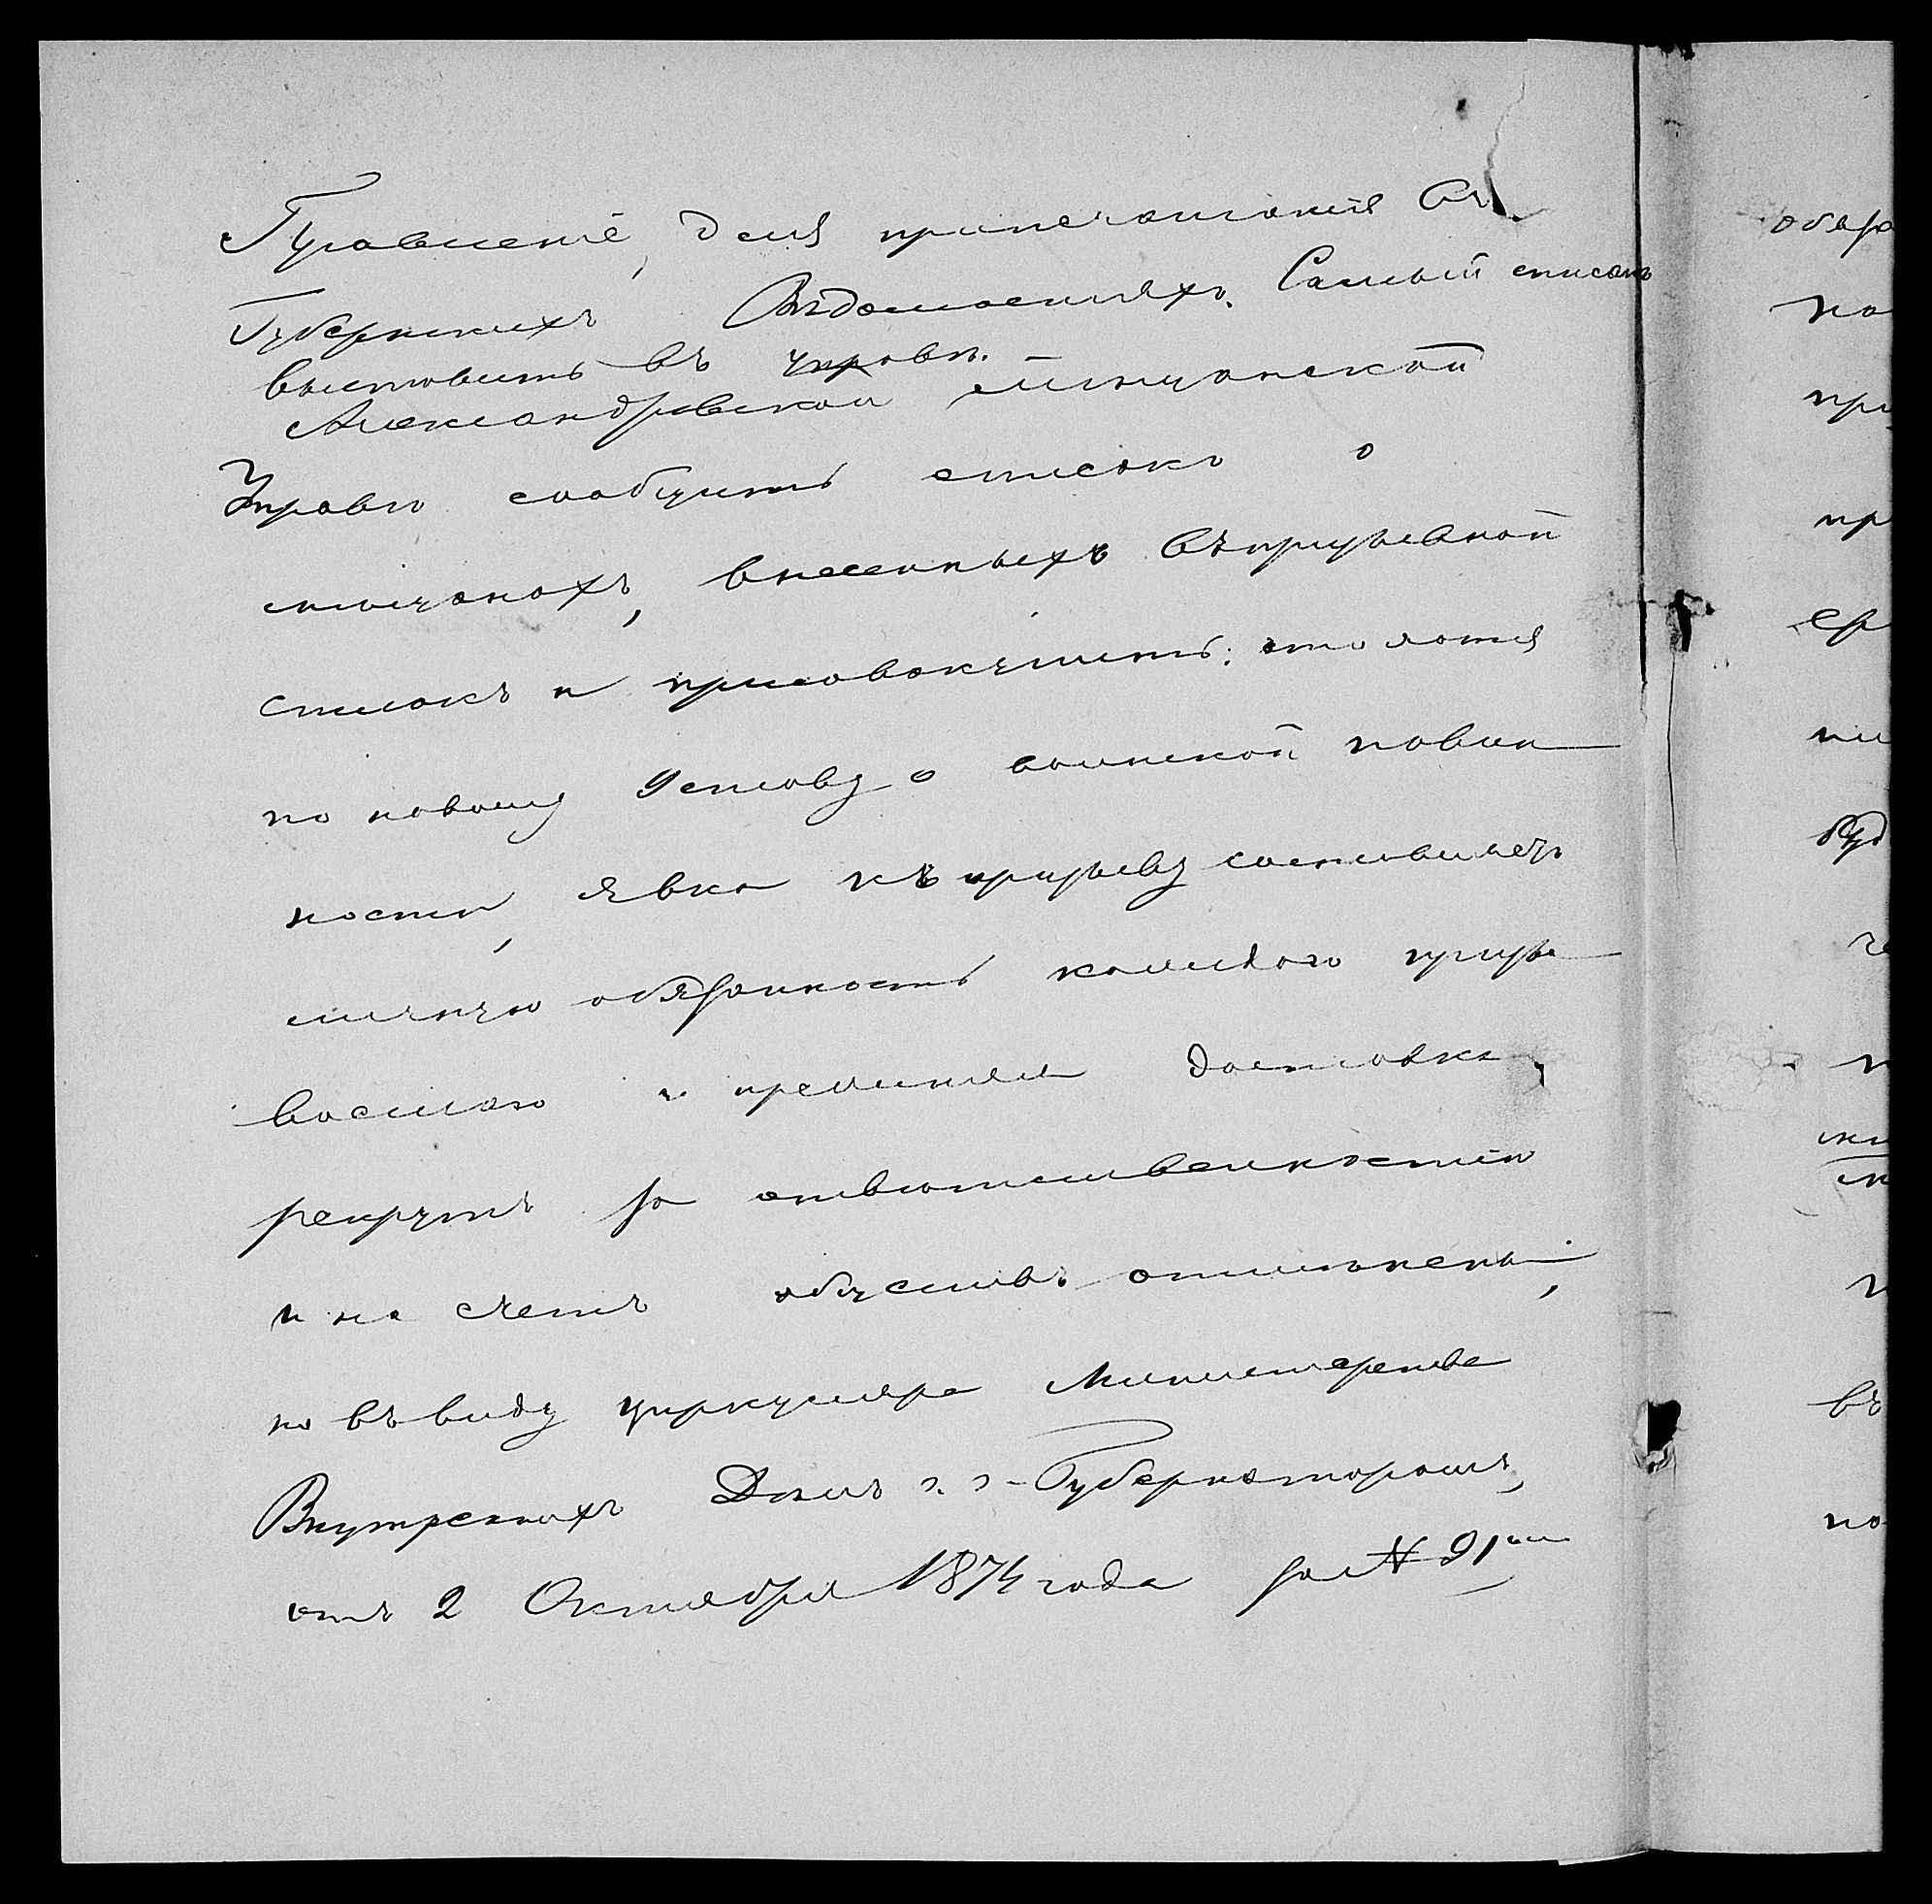 Правленіе, для припечатанія въ
Губернскихъ Вѣдомостяхъ. Самый списокъ
выставить въ управѣ.
Александровской мѣщанской
Управѣ сообщить списокъ о
мѣщанахъ, внесенныхъ въ призывной
списокъ и присовокупить: что хотя
по новому Уставу о воинской повин
ности, явка къ призыву составляетъ
личную обязанность каждаго призы
ваемаго и прежняя доставка
рекрутъ за отвѣтственностію
и на счетъ обществъ отмѣнены,
но въ виду циркуляра Министерства
Внутреннихъ Дѣлъ г. г. Губернаторамъ,
отъ 2 Октября 1874 года за № 91
обяза
на
при
пр
ер
пи
буд
че
въ
по